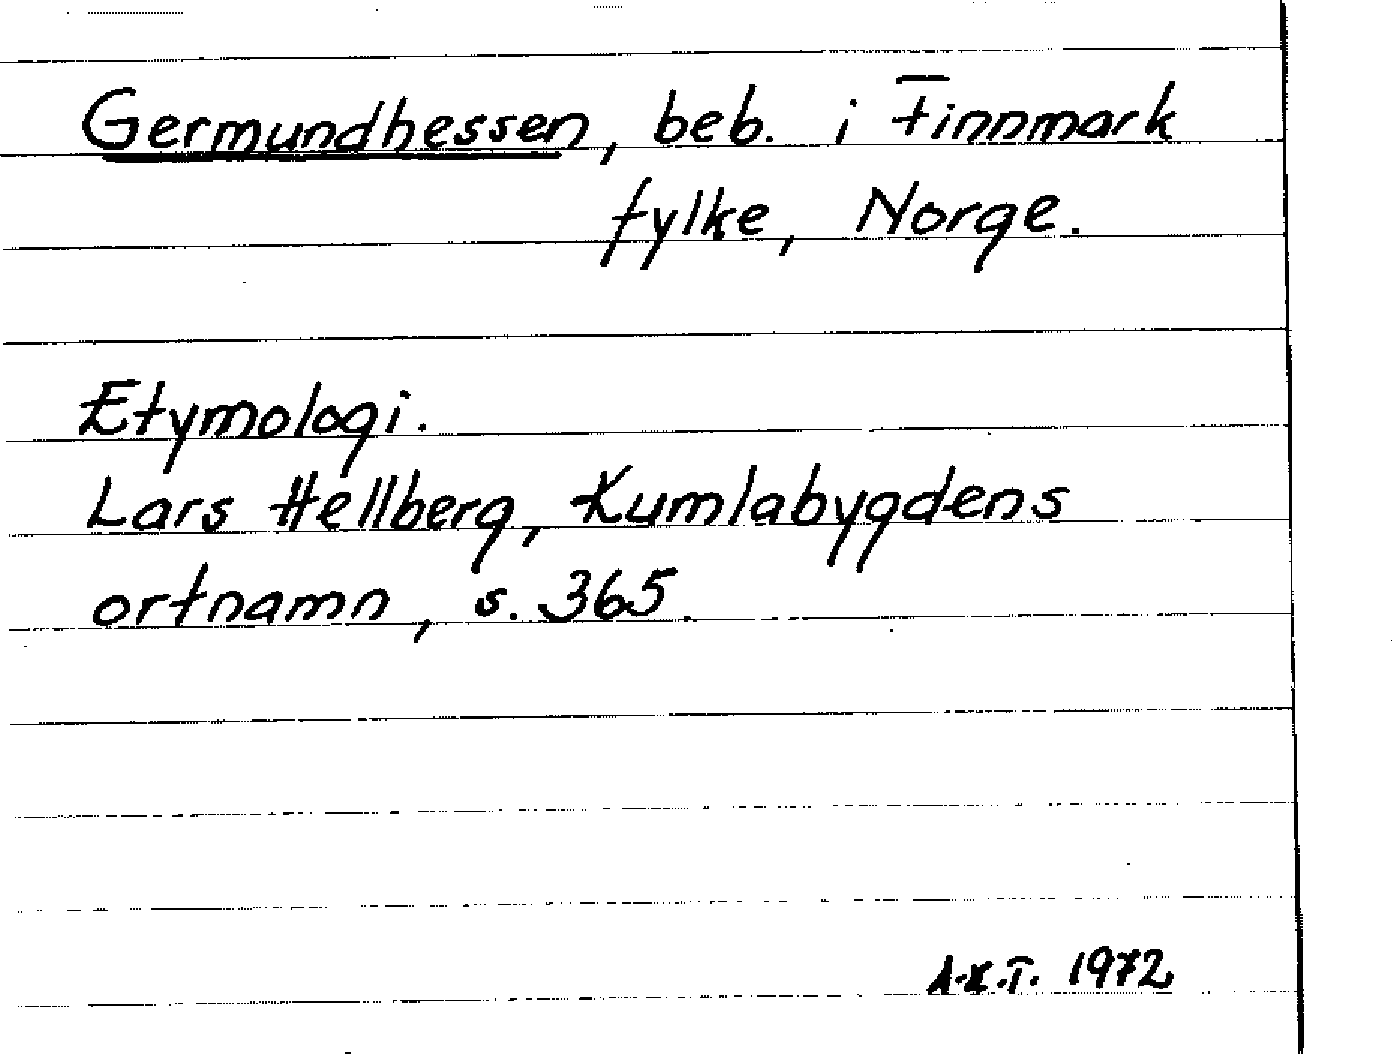 Germundhessen, beb. i Finnmark
fylke, Norge.
Etymologi.
Lars Hellberg, Kumlabygdens
ortnamn, s. 365.
A.K.T. 1972